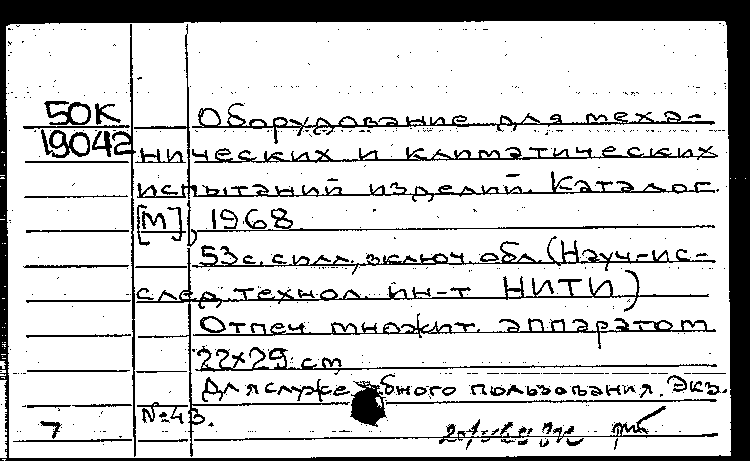 50К
19042
Оборудование для меха-
нических и климатических
испытаний изделий. Каталог.
[М], 1968.
53 с. с илл., включ. обл. (Науч-ис-
след. технол. ин-т НИТИ)
Отпеч. множит. аппаратом
22х29 см
Для служебного пользования. Экз.
№43.
7